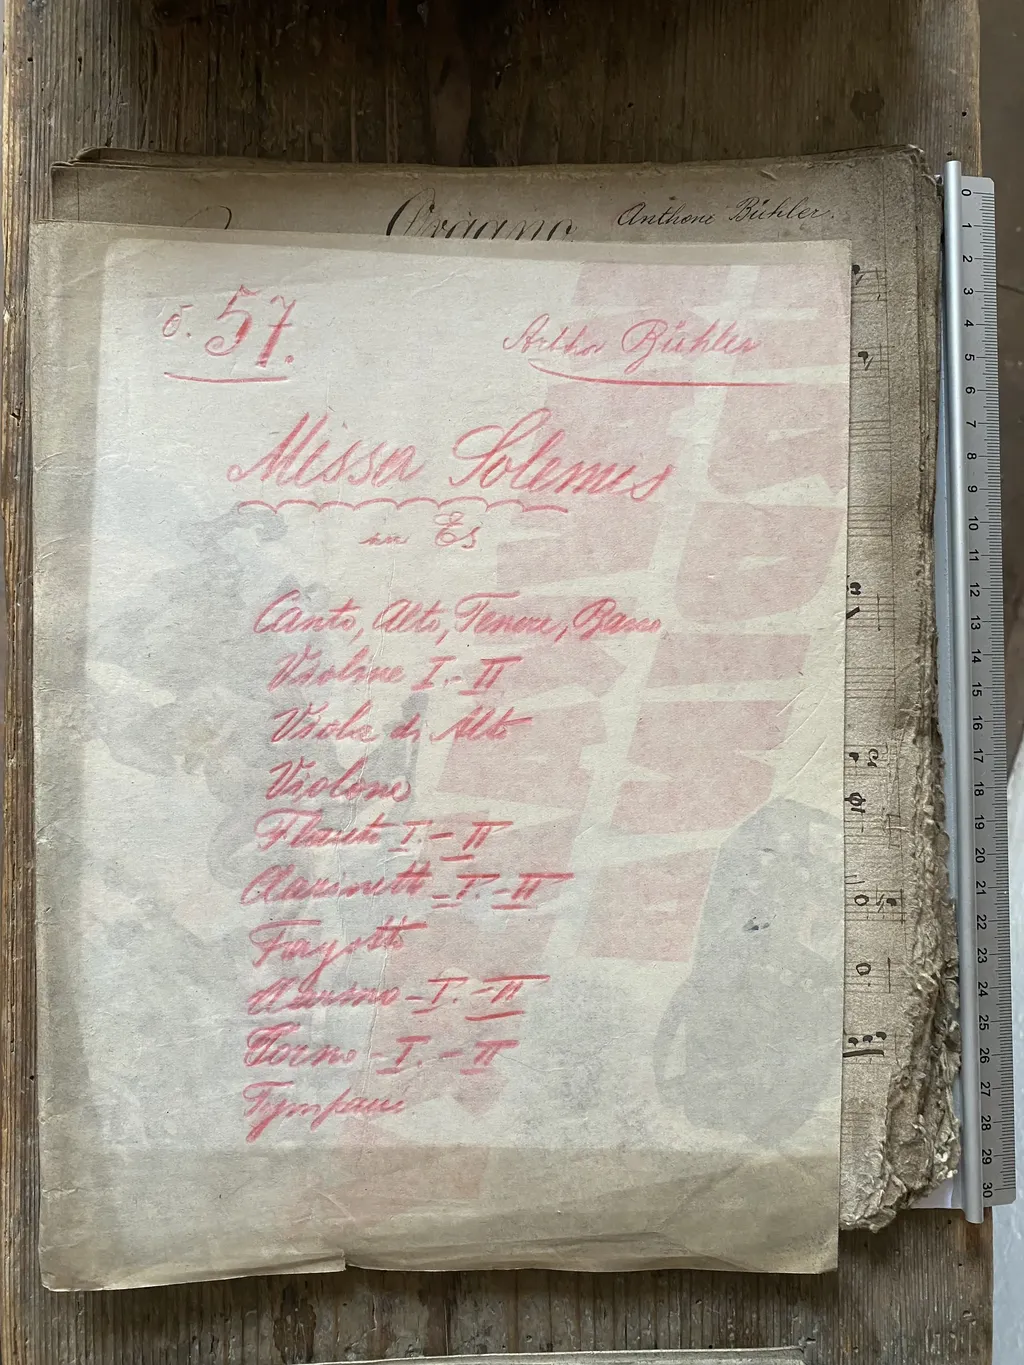 Organo Anthoni Bühler.
č. 57.
Bühler
Messa Solemnis
in Es
Canto, Alto, Tenore, Basso
Violine I.-II
Viola di Alto
Violone
Flauti I.-II
Clarinetti I.-II
Fagotto
Clarino - I. - II
Corno - I. - II
Tympani
0 1 2 3 4 5 6 7 8 9 10 11 12 13 14 15 16 17 18 19 20 21 22 23 24 25 26 27 28 29 30